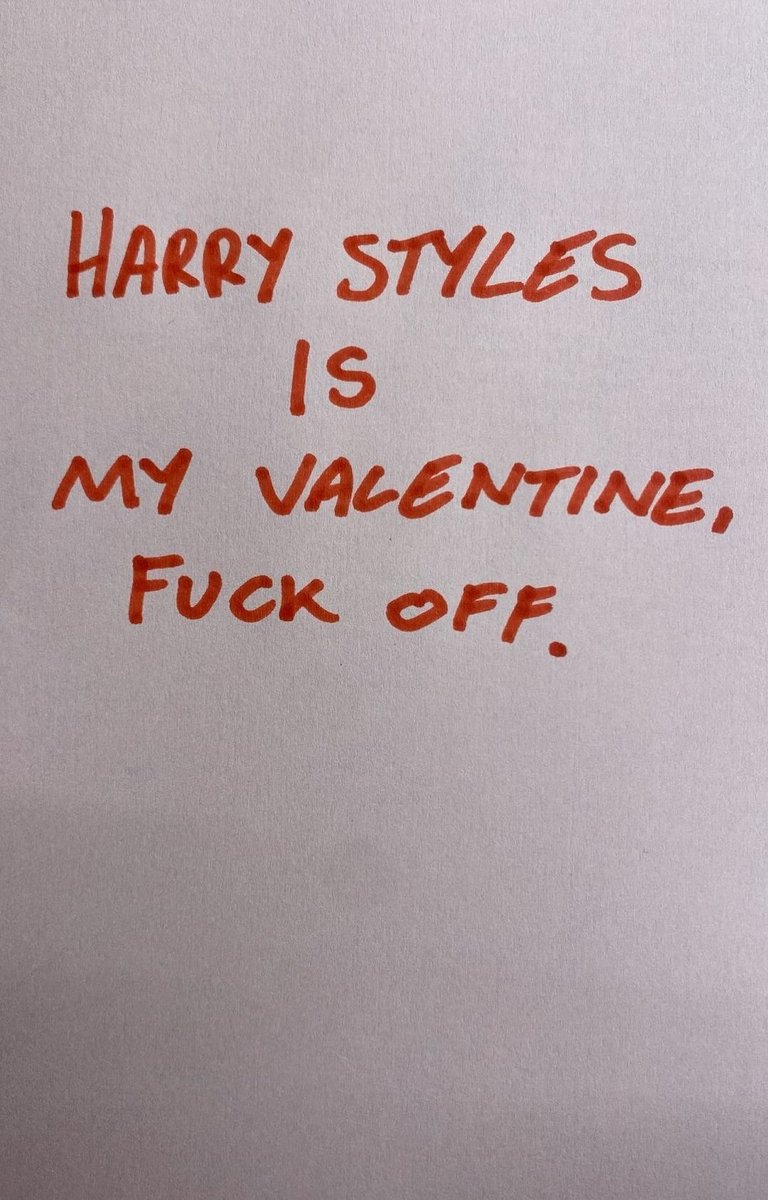 HARRY STYLES
IS
MY VALENTINE,
FUCK OFF.